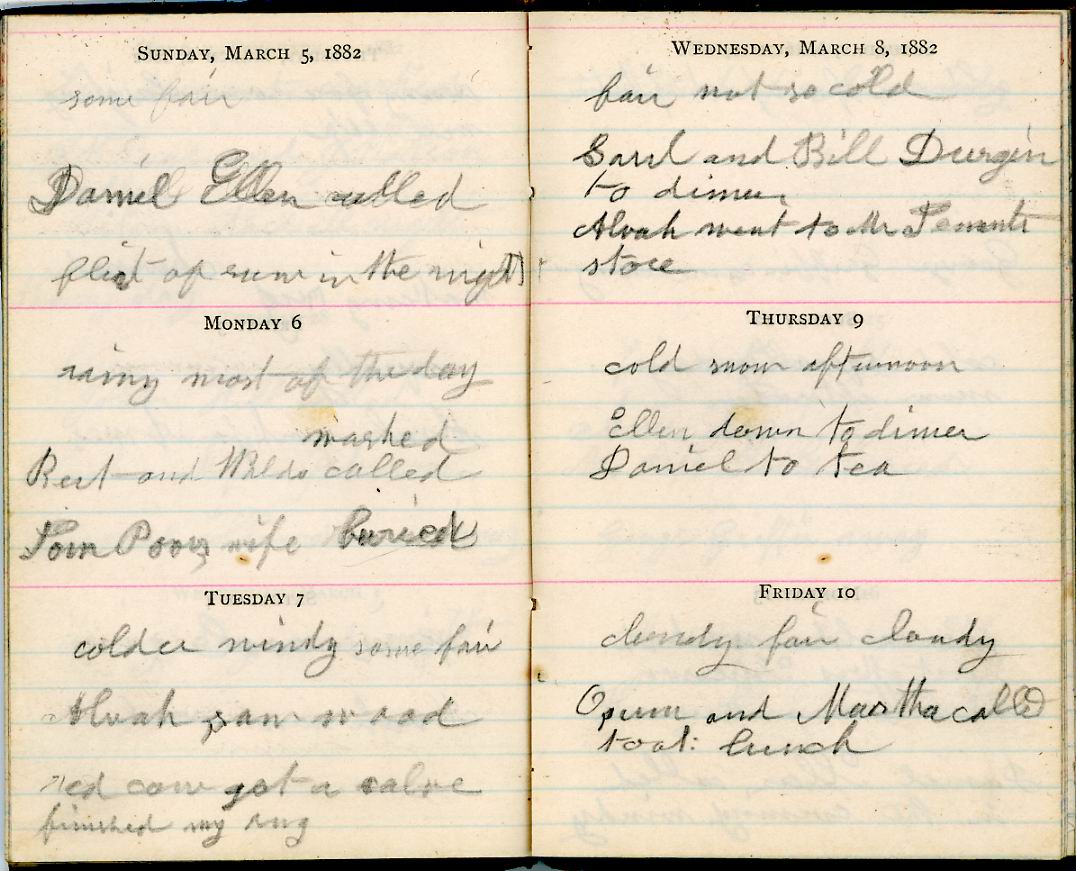 SUNDAY, MARCH 5, 1882
some fair
Daniel Ellen called
of in the night
MONDAY 6
rainy most of the day
washed
Bert and Waldo called
Tom Poors wife buried
TUESDAY 7
colder windy some fair
Alvah saw wood
red cow got a calve
finished my rug
WEDNESDAY, MARCH 8, 1882
fair not so cold
and Bill Durgin
to dinner
Alvah went to Mr
store
THURSDAY 9
cold snow afternoon
Ellen down to dinner
Daniel to tea
FRIDAY 10
cloudy fair cloudy
and Martha called
lunch